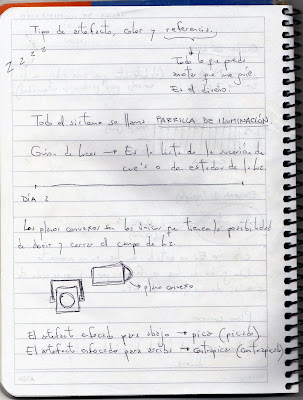 Tipo de artefacto, color y referencia.
z z z z
Todo lo que pueda
anotar que me guíe.
Es el diseño.
Todo el sistema se llama PARRILLA DE ILUMINACIÓN.
Guión de luces → Es la lista de la sucesión de
cue's o de estados de la luz.
DÍA 2
Los planos convexos son los únicos que tienen la posibilidad
de abrir y cerrar el campo de luz.
→ plano convexo
El artefacto enfocado para abajo → pica (picado)
El artefacto enfocado para arriba → contrapica (contrapicado)